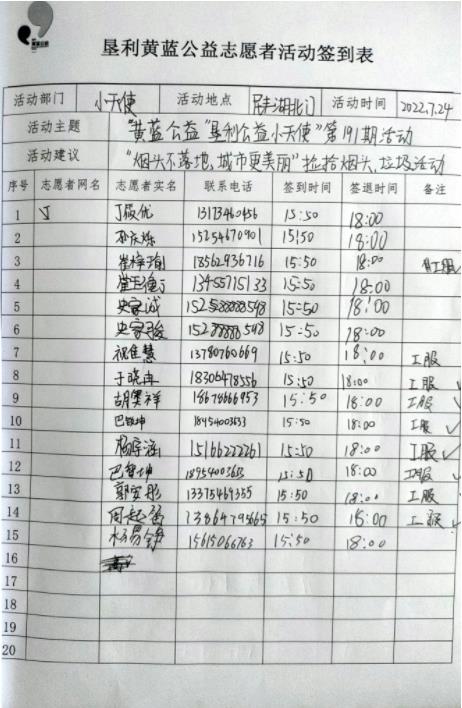 垦利黄蓝公益志愿者活动签到表
活动部门 小天使 活动地点 民丰湖北门 活动时间 2022.7.24
活动主题 "黄蓝公益"垦利公益小天使"第191期活动
活动建议 "烟头不落地,城市更美丽"捡拾烟头、垃圾活动
序号 志愿者网名 志愿者实名 联系电话 签到时间 签退时间 备注
1 13173460456 15:50 18:00
2 15254670901 15:50 18:00
3 13562936716 15:50 18:00 工服 ✓
4 15:50 18:00
5 史家诚 15:50 18:00
6 史家骏 15:50 18:00
7 祝佳慧 13780760669 15:50 18:00 工服
8 于晓冉 18306478556 15:50 18:00 工服 ✓
9 胡奥祥 18678666953 15:50 18:00 工服 ✓
10 15:50 18:00 工服 ✓
11 杨宇涵 15166222261 15:50 18:00 工服 ✓
12 巴智坤 18954003633 15:50 18:00 工服 ✓
13 郭宴彤 13375469355 15:50 18:00 工服 ✓
14 15:50 18:00 工服 ✓
15 杨易铮 15615066763 15:50 18:00
16
17
18
19
20